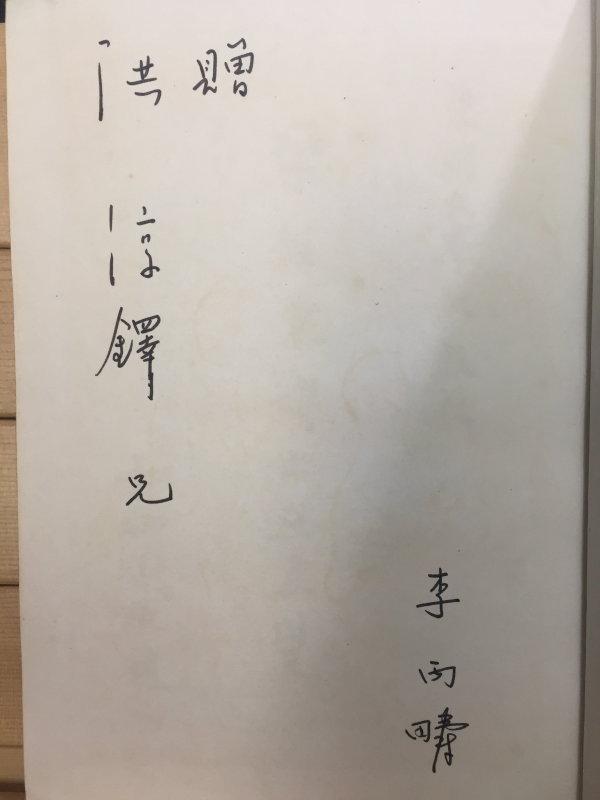 贈
洪淳鐸兄
李丙疇